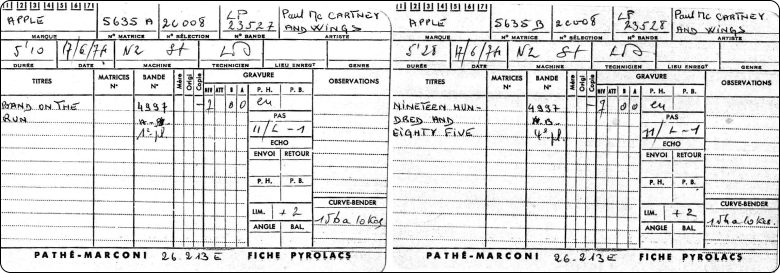 1 2 3 4 5 6 7
APPLE 5635 A 2C008 LP 23527 Paul Mc CARTNEY AND WINGS
MARQUE N° MATRICE N° SÉLECTION N° BANDE ARTISTE
5'10 17/6/74 N2 St
DURÉE DATE MACHINE TECHNICIEN LIEU ENREGT GENRE
TITRES MATRICES N° BANDE N° Mère Origi Copie GRAVURE OBSERVATIONS
NFF ATT B A P. H. P. B.
BAND ON THE 4997 - 7 0 0 en
RUN
1e pl
PAS
11/L -1
ECHO
ENVOI RETOUR
P. H. P. B.
CURVE-BENDER
LIM. +2 15 ba 10 kcs
ANGLE BAL.
PATHÉ-MARCONI 26.213E FICHE PYROLACS
1 2 3 4 5 6 7
APPLE 5635 B 2C008 LP 23528 Paul Mc CARTNEY AND WINGS
MARQUE N° MATRICE N° SÉLECTION N° BANDE ARTISTE
5'28 17/6/74 N2 St
DURÉE DATE MACHINE TECHNICIEN LIEU ENREGT GENRE
TITRES MATRICES N° BANDE N° Mère Origi Copie GRAVURE OBSERVATIONS
NFF ATT B A P. H. P. B.
NINETEEN HUN- 4997 - 7 0 0 en
DRED AND
EIGHTY FIVE 4e pl.
PAS
11/L -1
ECHO
ENVOI RETOUR
P. H. P. B.
CURVE-BENDER
LIM. +2
ANGLE BAL.
PATHÉ-MARCONI 26.213E FICHE PYROLACS